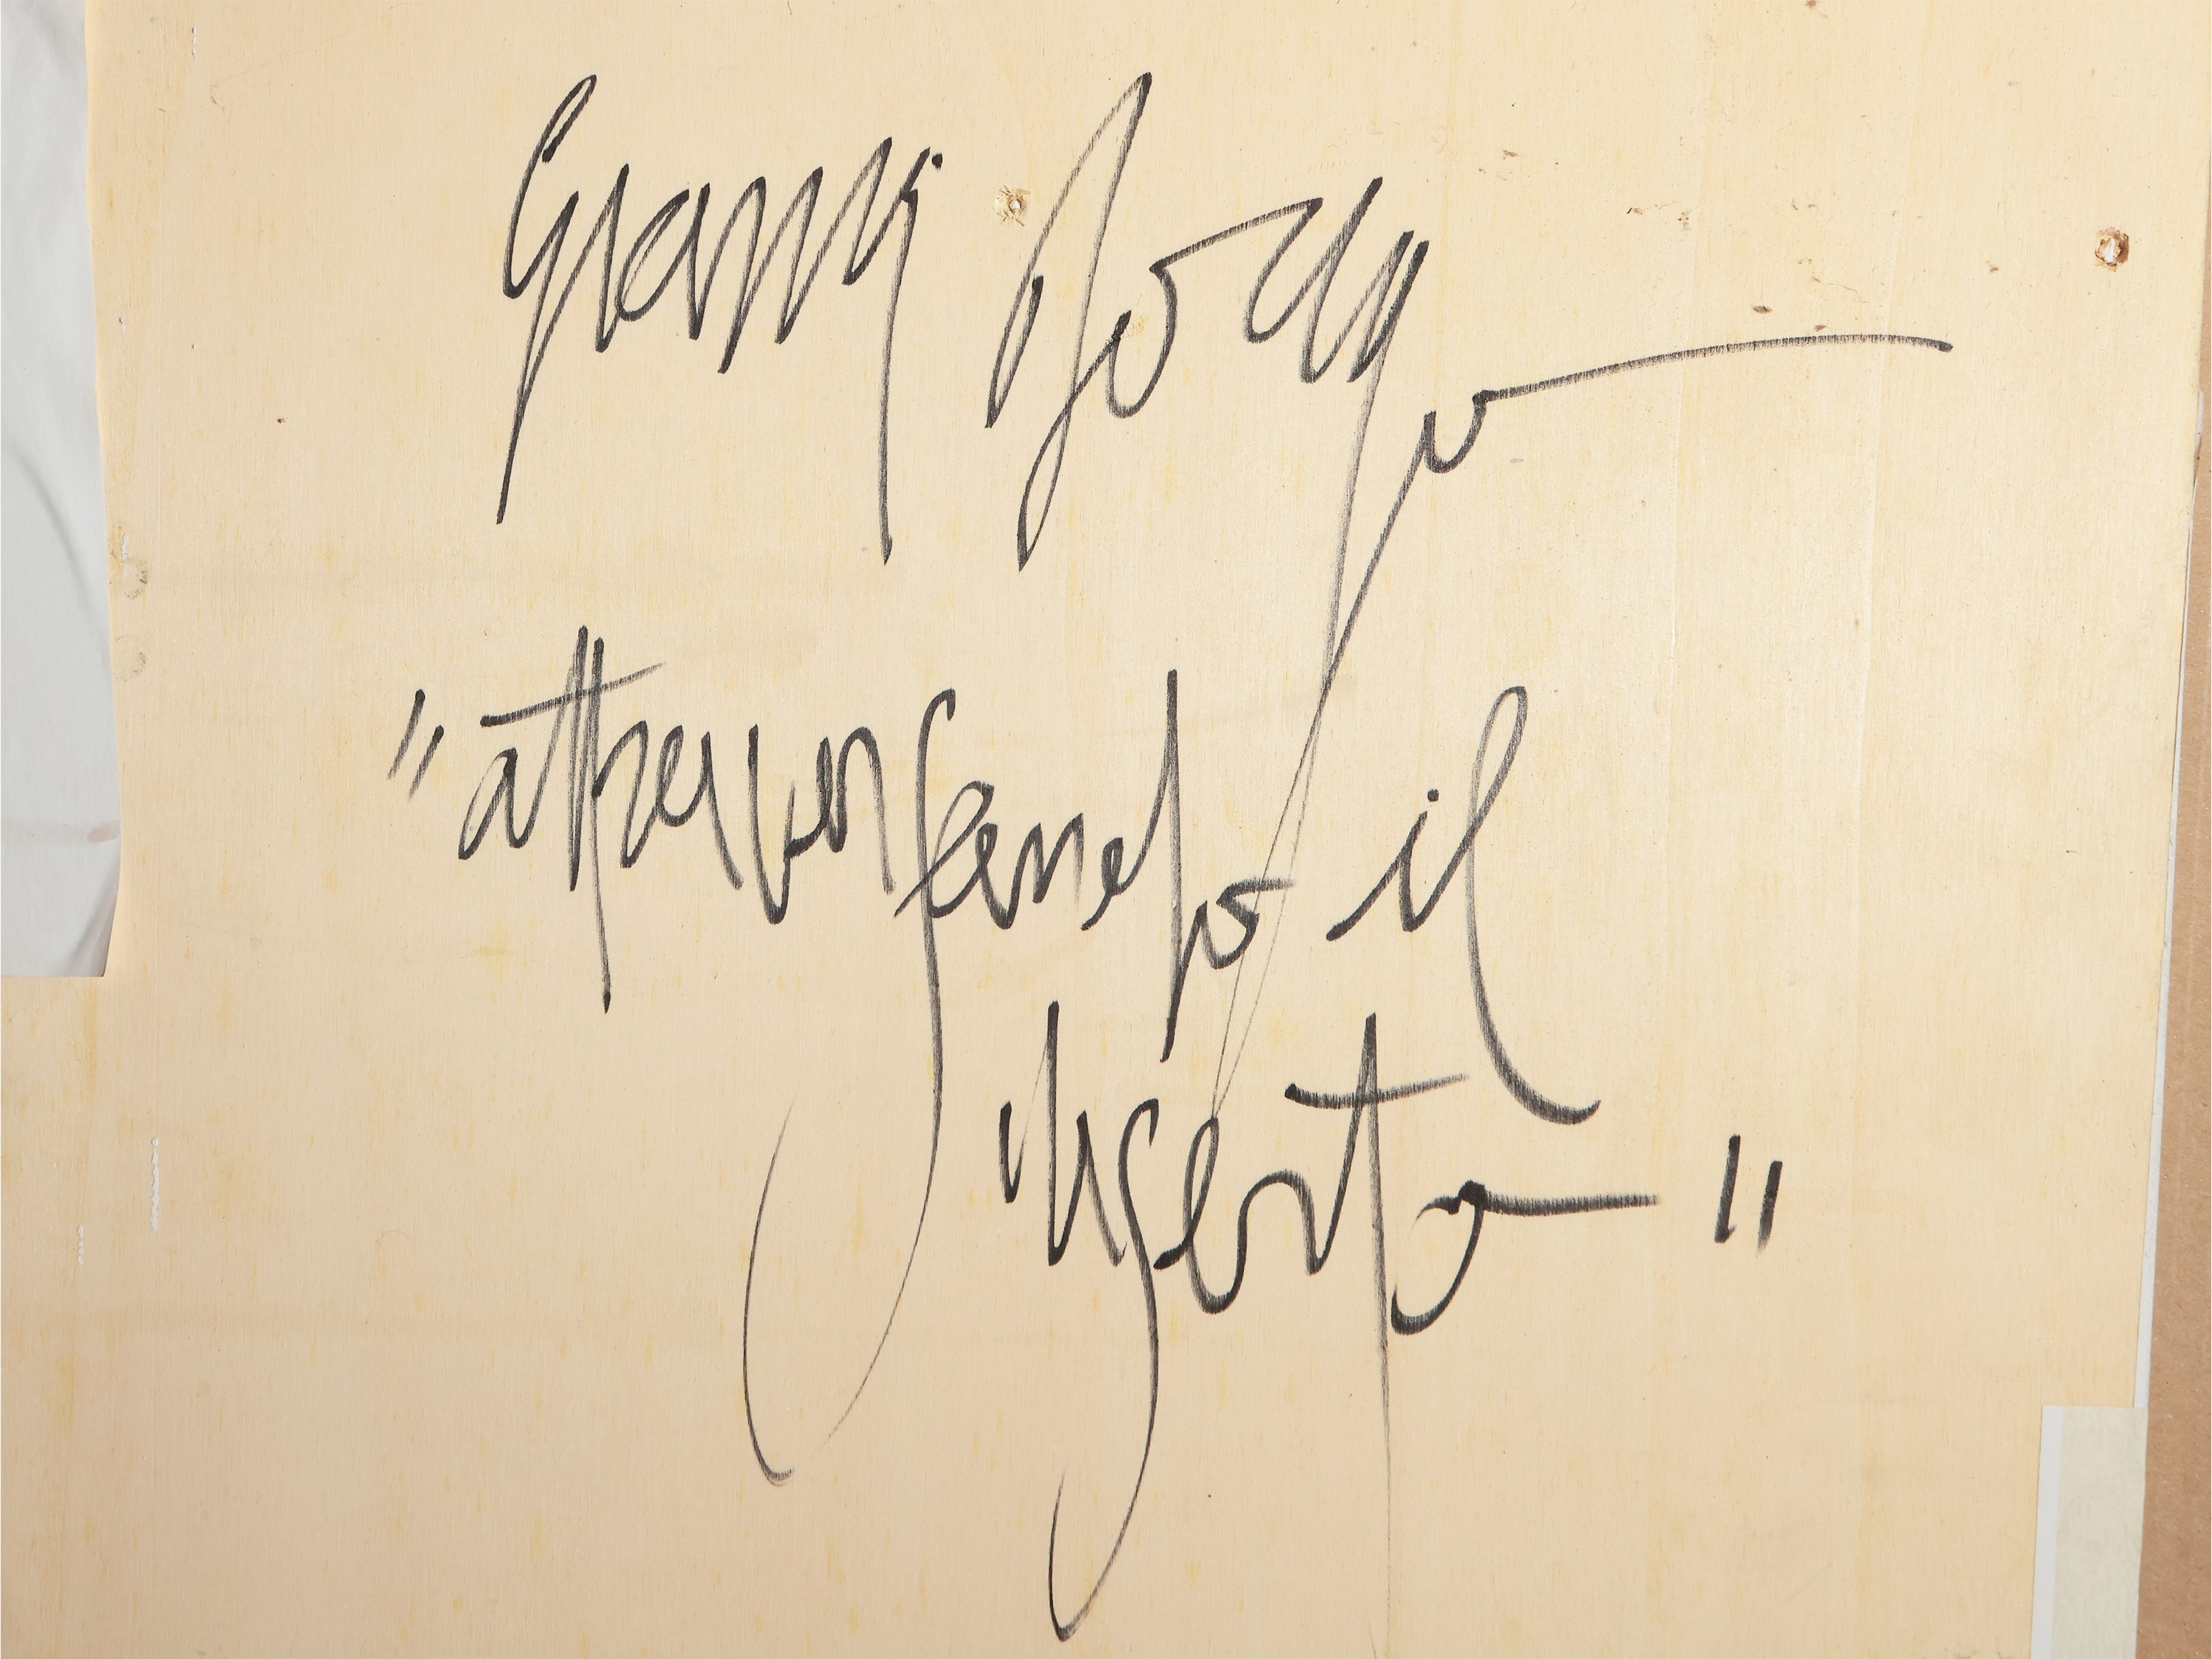 Gianni
"attraversando il
deserto"